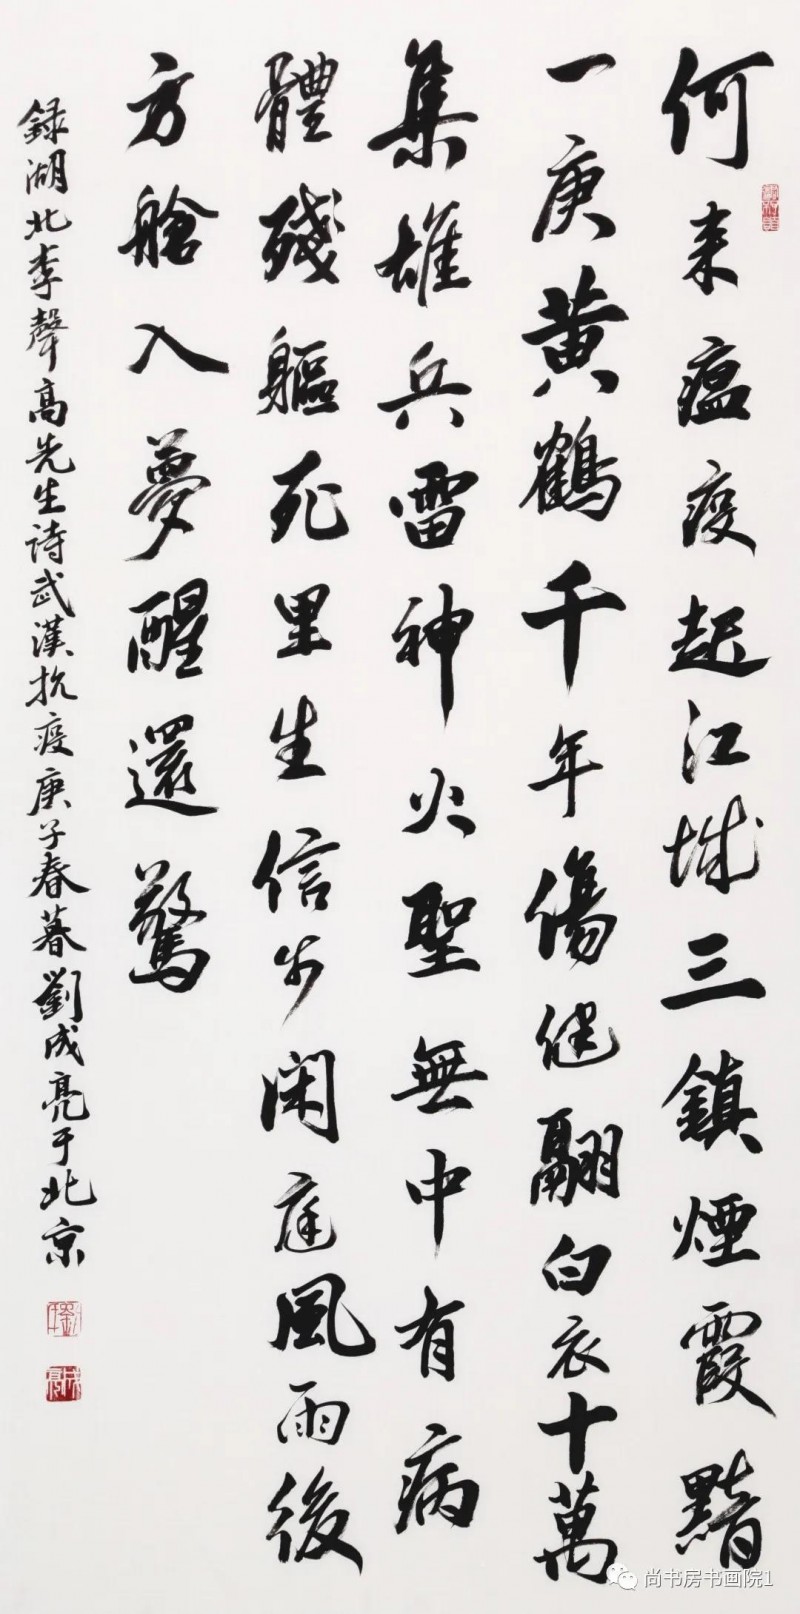 何来瘟疫起江城三鎮煙霞黯
一庚黄鶴千年傷健翮白衣十萬
集雄兵雷神火聖無中有病
體殘軀死里生信步闲庭風雨後
方艙入夢醒還驚
録湖北李聲高先生诗武漢抗疫庚子春暮劉成亮于北京
尚书房书画院1